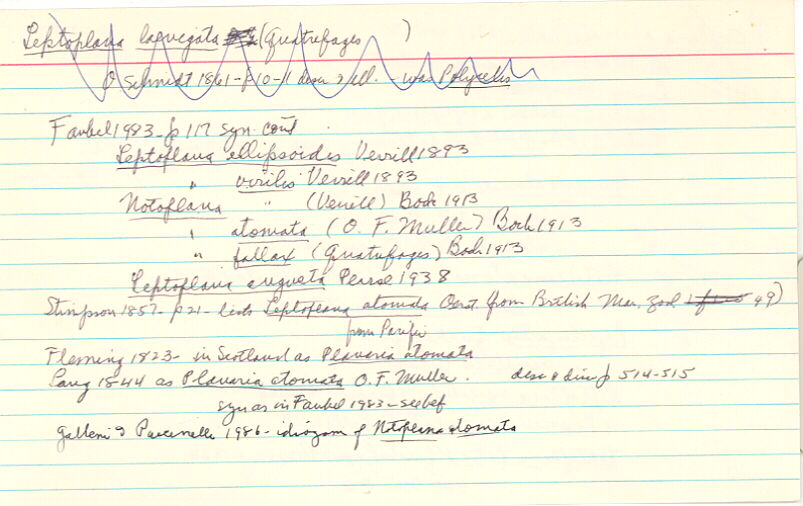 Leptoplana laevegata (Quatrefages )
O Schmidt 1861 - p 10-11 descr & ill. - was Polycelis
Faubel 1983 - p 117 syn. cont
Leptoplana ellipsoides Verrill 1893
" virilis Verrill 1893
Notoplana " (Verrill) Bock 1913
" atomata (O. F. Muller) Bock 1913
" fallax (Quatrefages) Bock 1913
Leptoplana angusta Pearse 1938
Stimpson 1857 - p 21 - lists Leptoplana atomata Oerst. from British Mus. Zool 49)
from Pacific
Fleming 1823 - in Scotland as Planaria atomata
Lang 1844 as Planaria atomata O. F. Muller. desc & disc p 514-515
syn as in Faubel 1983 - see bef
Galleni & Puccinelli 1986 - idiogram of Notoplana atomata